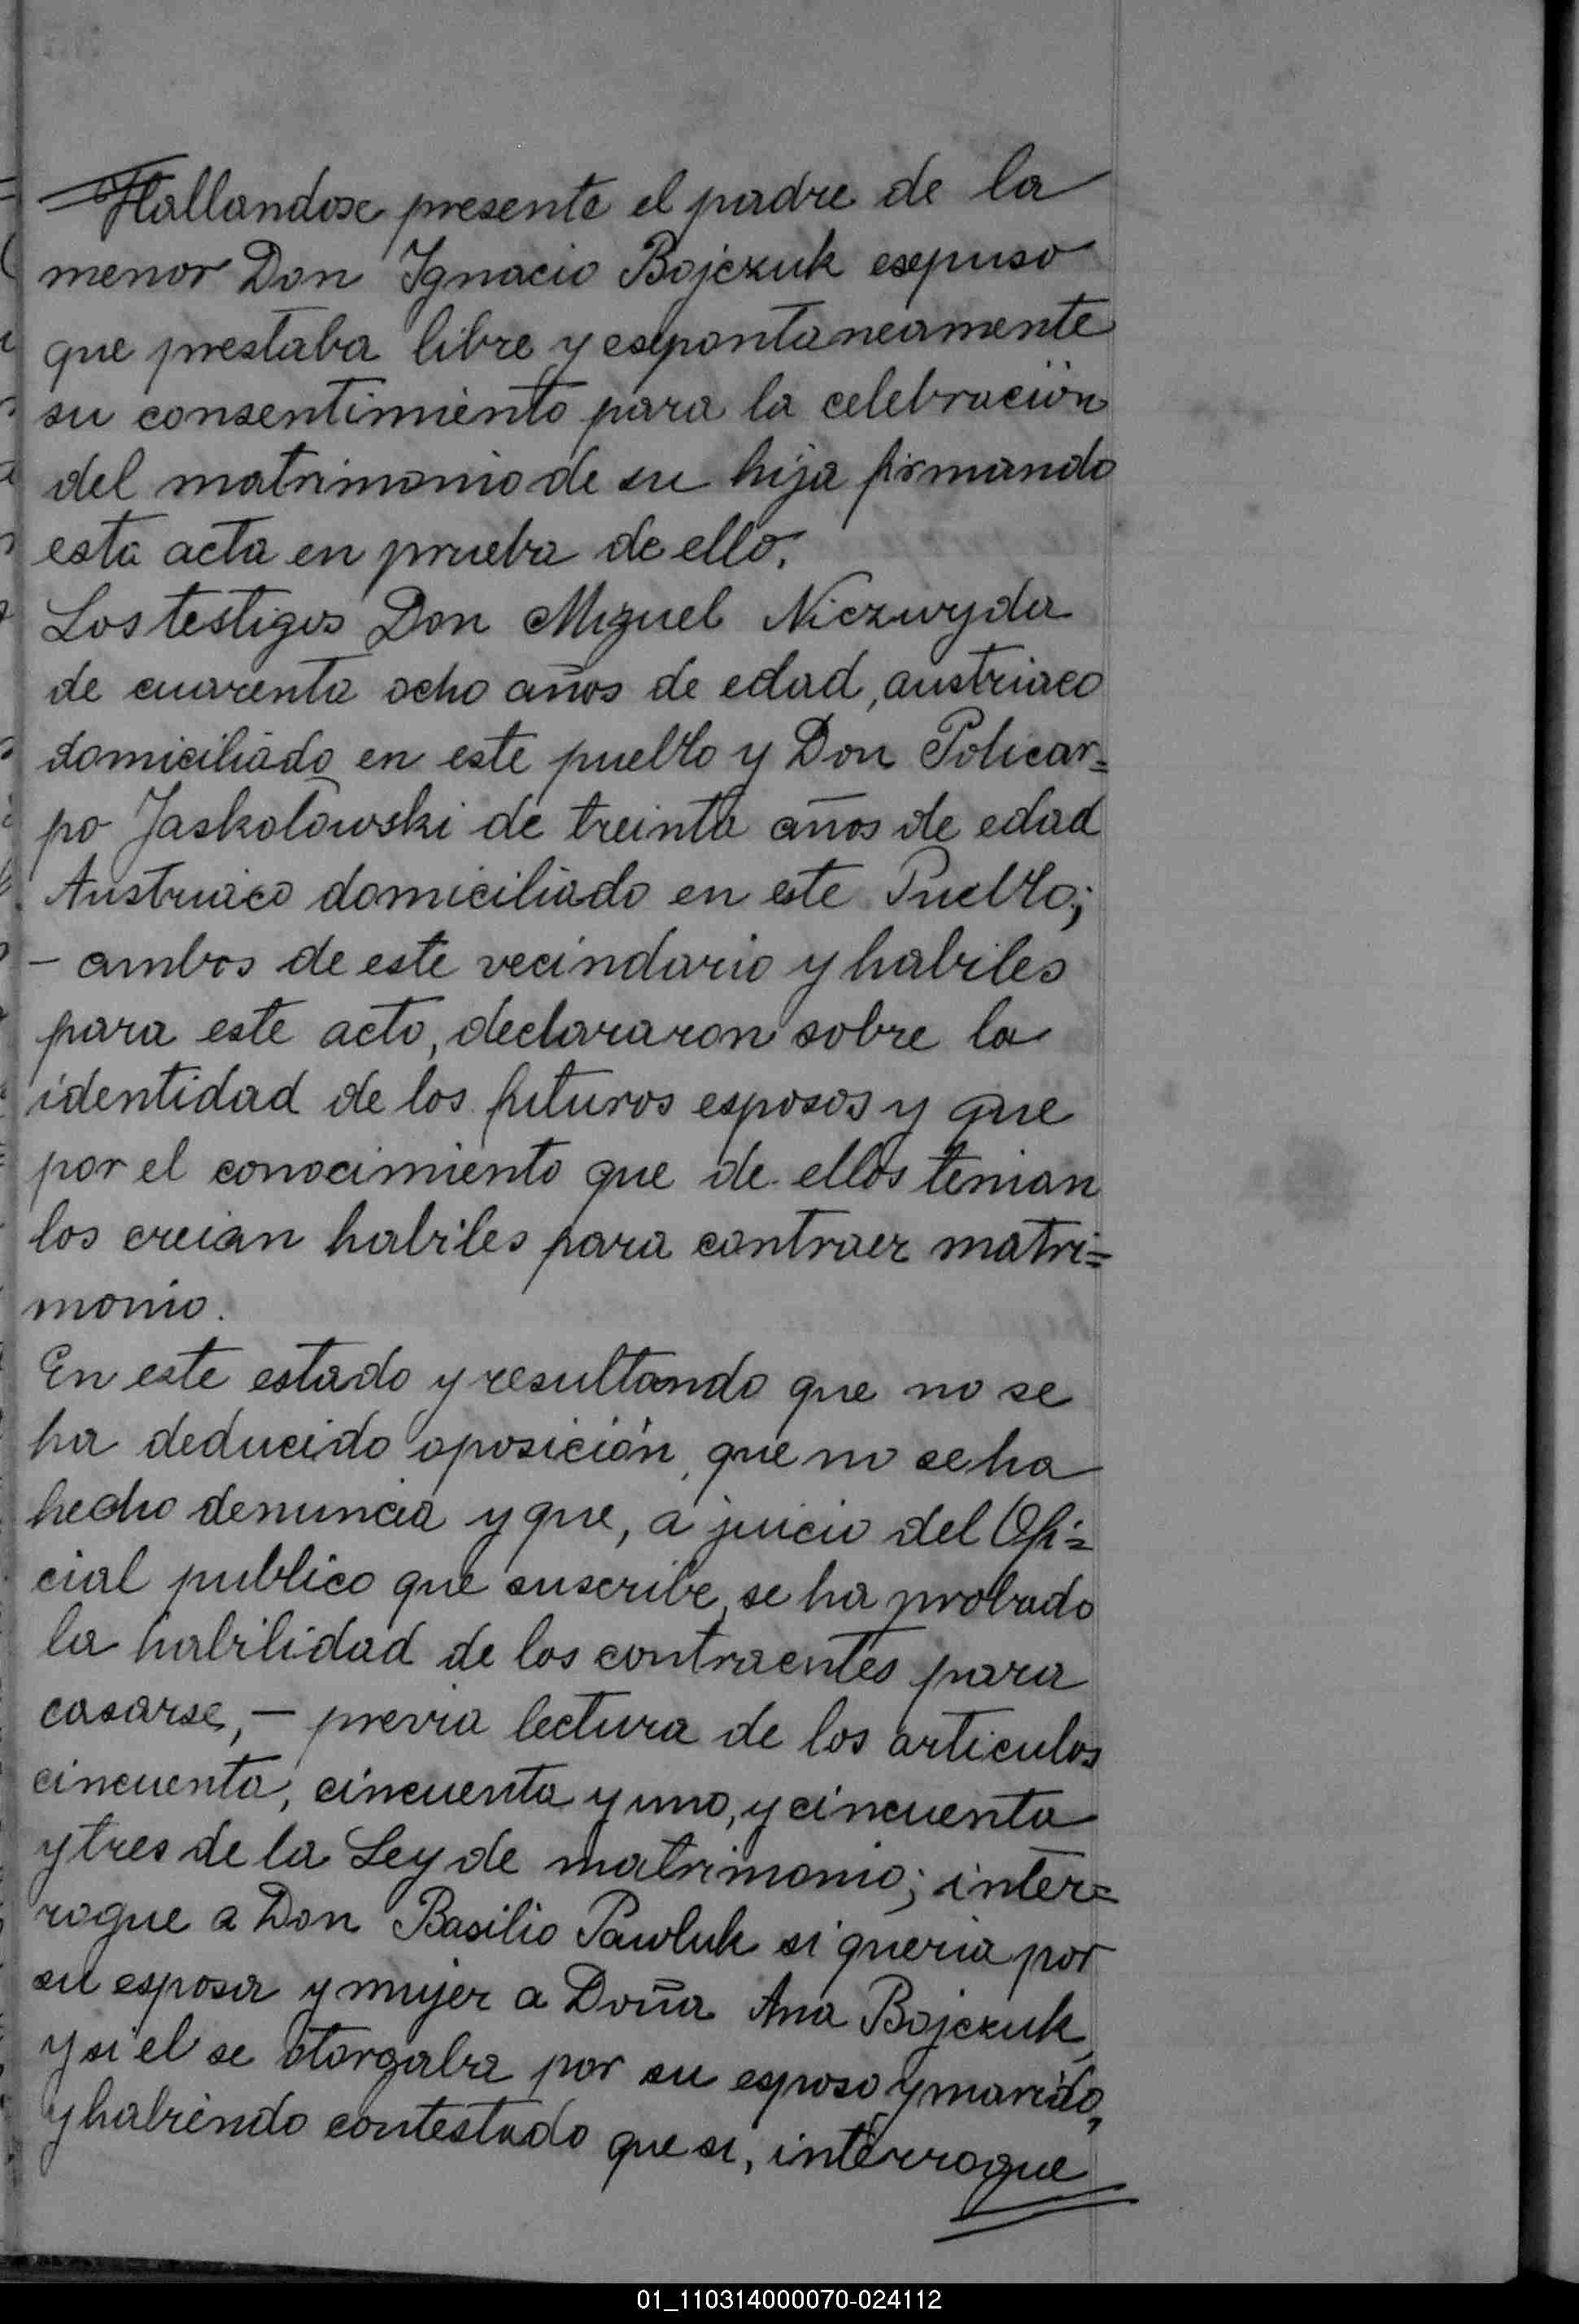 Hallandose presente el padre de la
menor Don Ignacio Bojczuk expuso
que prestaba libre y espontaneamente
su consentimiento para la celebracion
del matrimonio de su hija firmando
esta acta en prueba de ello.
Los testigos Don Miguel Niezwyda
de cuarenta ocho años de edad, austriaco
domiciliado en este pueblo y Don Policar=
po Jaskolowski de treinta años de edad
Austriaco domiciliado en este Pueblo;
- ambos de este vecindario y habiles
para este acto, declararon sobre la
identidad de los futuros esposos y que
por el conocimiento que de ellos tenian
los creian habiles para contraer matri=
monio.
En este estado y resultando que no se
ha deducido oposición, que no se ha
hecho denuncia y que, a juicio del Ofi=
cial publico que suscribe, se ha probado
la habilidad de los contraentes para
casarse, - previa lectura de los articulos
cincuenta, cincuenta y uno, y cincuenta
y tres de la Ley de matrimonio; inter=
rogue a Don Basilio Pawluk si queria por
su esposa y mujer a Doña Ana Bojczuk,
y si el se otorgaba por su esposo y marido,
y habiendo contestado que si, interrogue
01_110314000070-024112